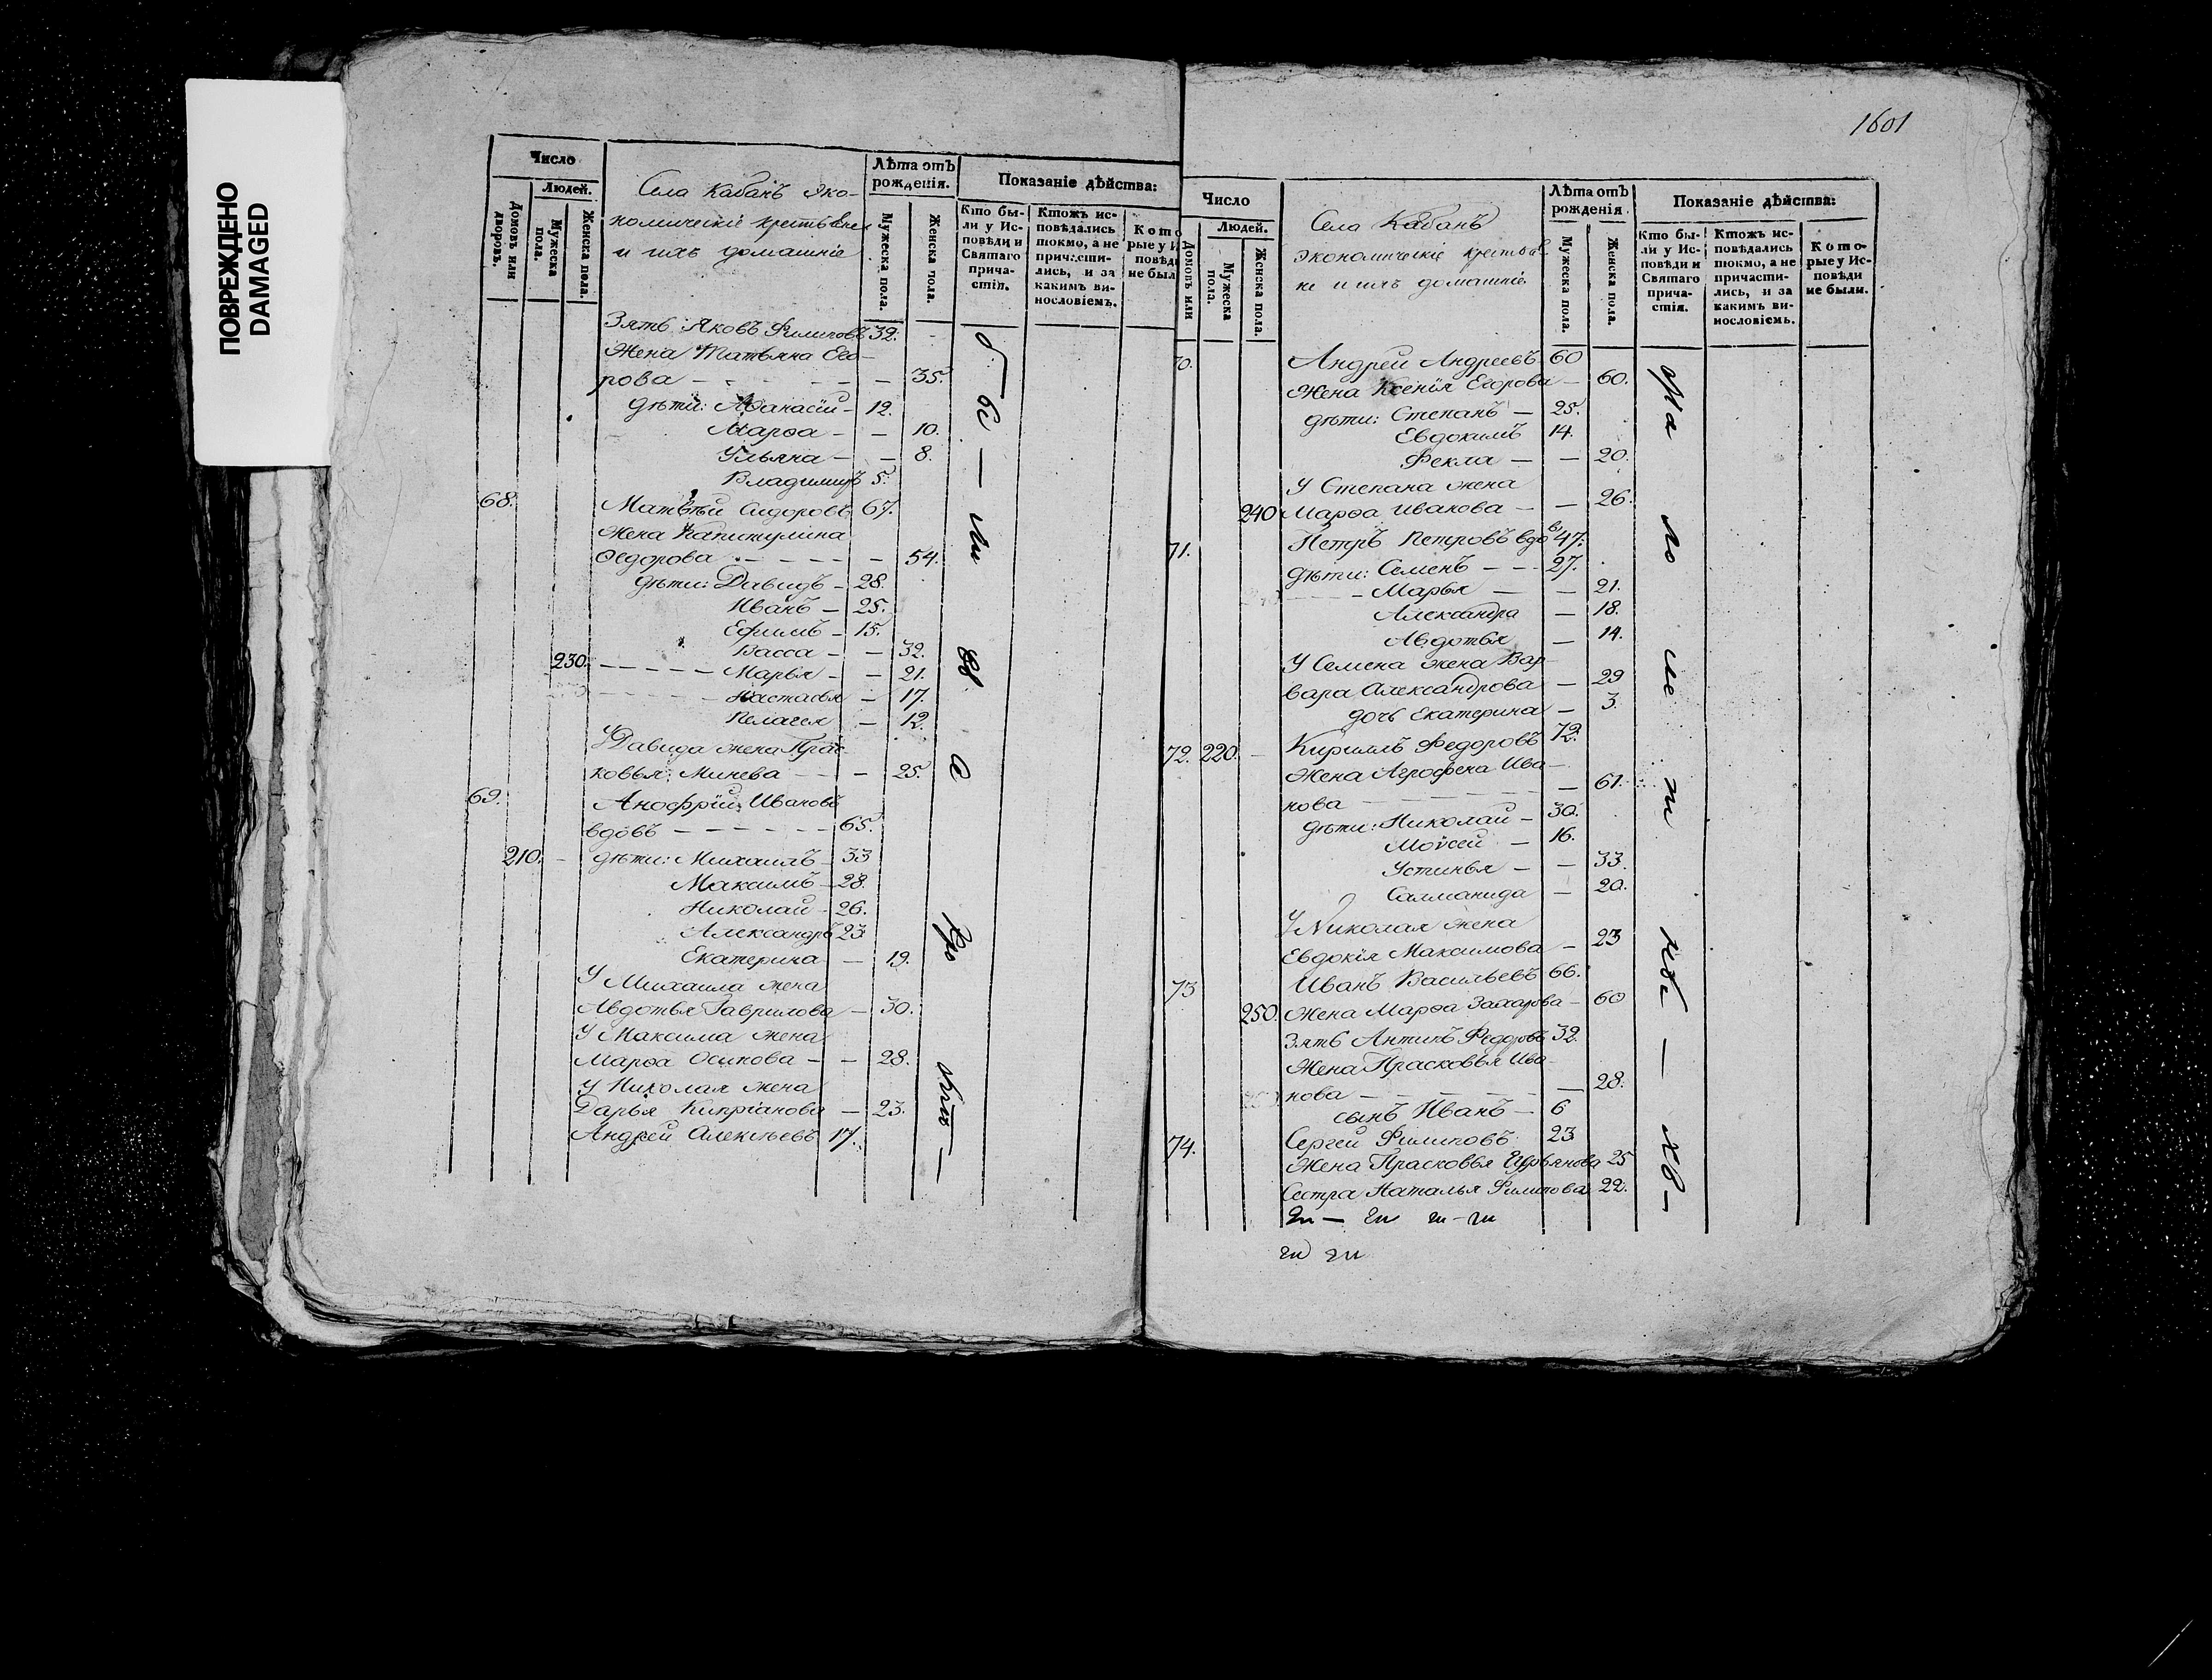 ПОВРЕЖДЕНО
DAMAGED
Число
Людей.
Домовъ или дворовъ.
Мужеска пола.
Женска пола.
Села Кабанъ эко-
номическіе крестьяне
и ихъ домашніе
Лѣта отъ
рожденія.
Мужеска пола.
Женска пола.
Показаніе дѣйства:
Кто бы-
ли у Ис-
повѣди и
Святаго
прича-
стія.
Ктожъ ис-
повѣдались
токмо, а не
причасти-
лись, и за
какимъ ви-
нословіемъ.
Кото
рые у И
повѣд
не был
Зять Яковъ Филиповъ 32.
Жена Татьяна Его-
рова — — 35.
дѣти: Афанасій — 12.
Марѳа — — 10.
Ульяна — — 8.
Владимиръ 5.
68. Матвѣй Сидоровъ 67.
Жена Капитулина
Ѳедорова — — 54.
дѣти: Давидъ — 28.
Иванъ — 25.
Ефимъ — 15.
Васса — — 32.
230. — Марья — — 21.
Настасья — 17.
Пелагея — 12.
У Давида жена Прас
ковья Минева — — 25.
69. Анофрій Ивановъ
вдовъ — 65.
210. — дѣти: Михаилъ — 33
Максимъ — 28.
Николай — 26.
Александръ 23
Екатерина — 19.
У Михаила жена
Авдотья Гаврилова — 30.
У Максима жена
Марѳа Осипова — — 28.
У Николая жена
Дарья Кипріанова — 23.
Андрей Алексѣевъ 17.
1601
Число
Людей.
Домовъ или
Мужеска пола.
Женска пола.
Села Кабанъ
экономическіе крестья
не и ихъ домашніе
Лѣта отъ
рожденія.
Мужеска пола.
Женска пола.
Показаніе дѣйства:
Кто бы-
ли у Ис-
повѣди и
Святаго
прича-
стія.
Ктожъ ис-
повѣдались
токмо, а не
причасти-
лись, и за
какимъ ви-
нословіемъ.
Кото-
рые у Ис-
повѣди
не были.
70. Андрей Андреевъ 60
Жена Ксенія Егорова — 60.
дѣти: Степанъ — 25.
Евдокимъ 14.
Фекла — — 20.
У Степана жена
240 Марѳа Иванова — — 26.
71. Петръ Петровъ вдовъ 47.
дѣти: Семенъ — 27.
— Марья — — 21.
Александра — 18.
Авдотья — 14.
У Семена жена Вар-
вара Александрова — 29
дочь Екатерина — 3.
72. 220. — Кириллъ Федоровъ 72.
Жена Агрофена Ива-
нова — — 61.
дѣти: Николай — 30.
Моѵсей — 16.
Устинья — — 33.
Саломанида — 20.
У Николая жена
Евдокія Максимова — 23
73 Иванъ Васильевъ 66.
250. Жена Марѳа Захарова — 60
Зять Антипъ Федоровъ 32.
Жена Прасковья Ива-
нова — — 28.
сынъ Иванъ — 6
74. Сергей Филиповъ 23
Жена Прасковья 25
Сестра Наталья Филипова 22.